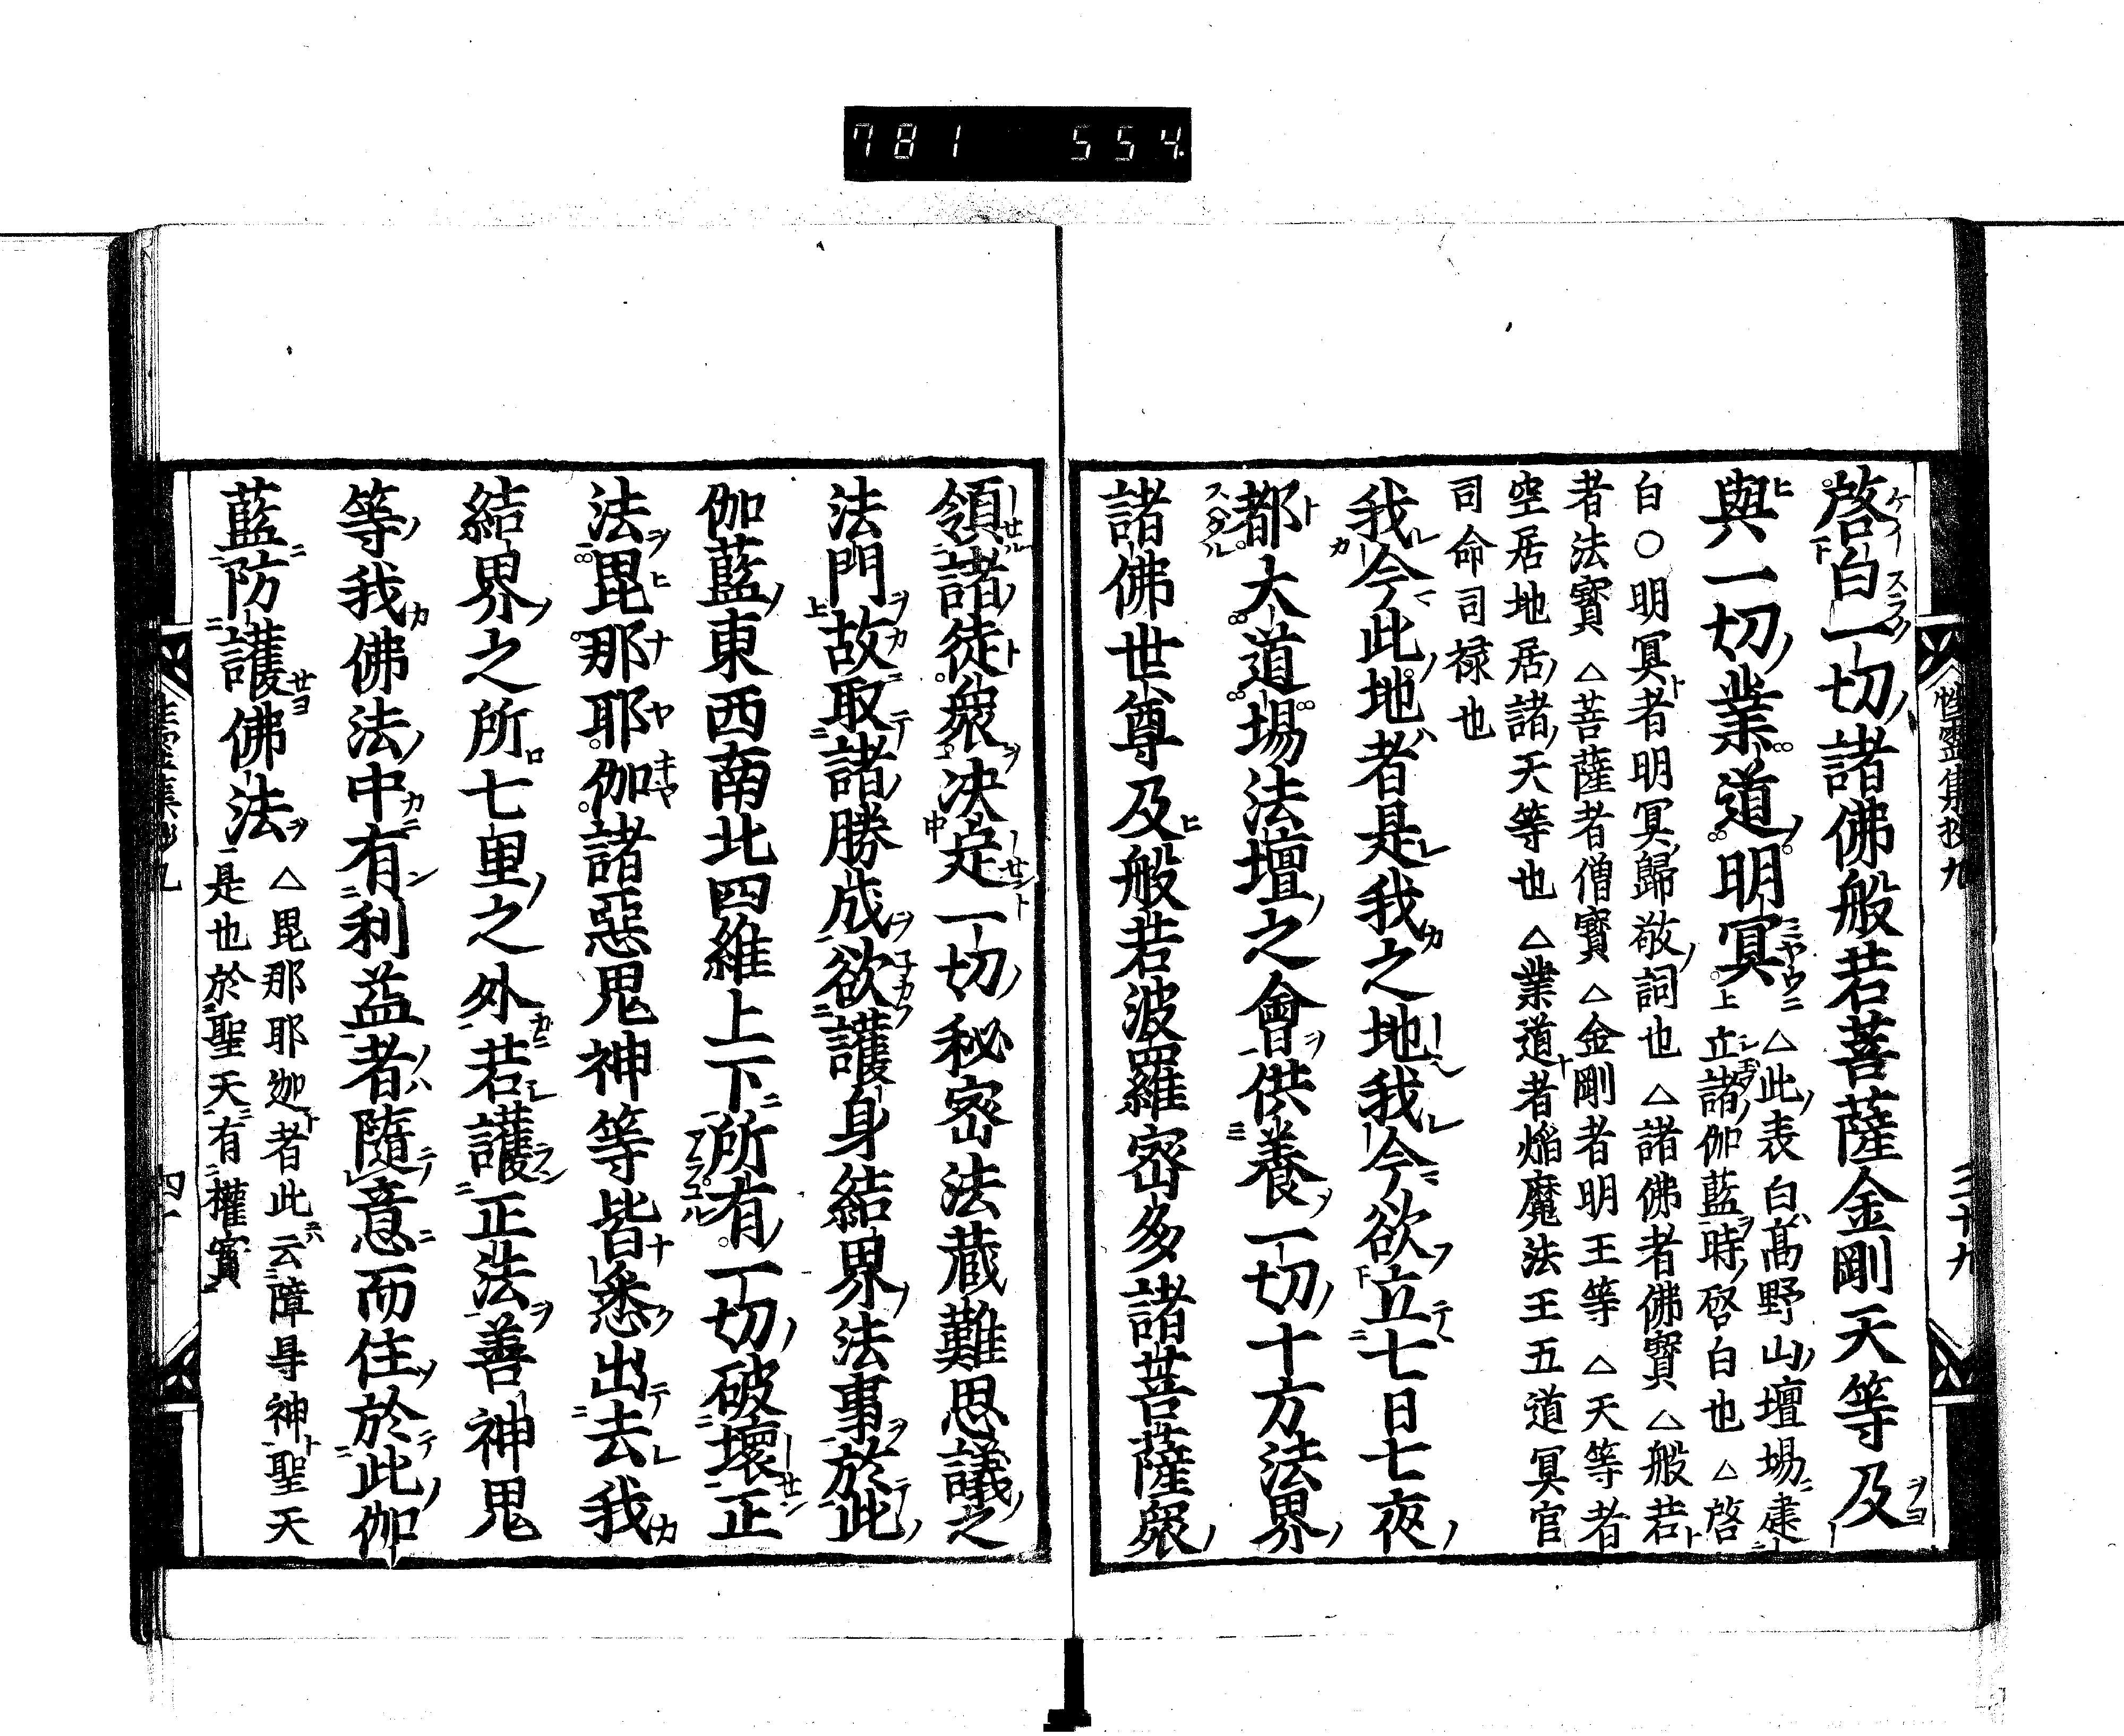 781 554
性靈集抄九
三十九
啓白一切諸佛般若菩薩金剛天等及
與一切業道明冥
△此表白髙野山壇場建
立諸伽藍時啓白也△啓
白○明冥者明冥歸敬詞也△諸佛者佛寳△般若
者法寳△菩薩者僧寳△金剛者明王等△天等者
空居地居諸天等也△業道者焔魔法王五道冥官
司命司禄也
我今此地者是我之地我今欲立七日七夜
都大道場法壇之會供養一切十方法界
諸佛世尊及般若波羅宻多諸菩薩衆
領諸徒衆决定一切秘宻法蔵難思議之
法門故取諸勝成欲護身結界法事於此
伽藍東西南北四維上下所有一切破壞正
法毘那耶伽諸惡鬼神等皆悉出去我
結界之所七里之外若護正法善神鬼
等我佛法中有利益者隨意而住於此伽
藍防護佛法
△毘那耶迦者此云障㝵神聖天
是也於聖天有權實